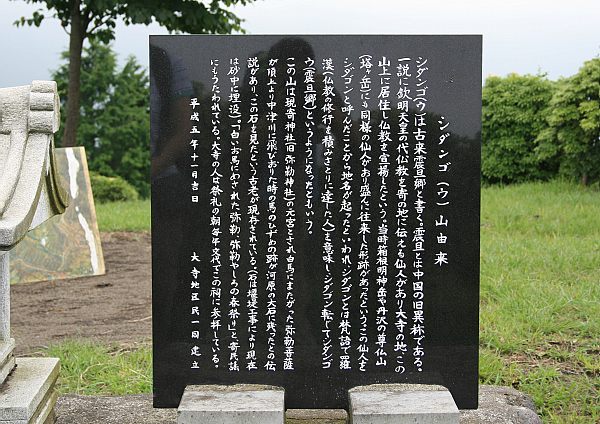 シダンゴ(ウ)山由来
シダンゴ(ウ)は古来震旦郷と書く震旦とは中国の旧異称である。
一説に欽明天皇の代仏教を寄の地に伝える仙人があり大寺の地、この
山上に居住し仏教を宣揚したという。当時箱根明神岳や丹沢の尊仏山
(塔ヶ岳)にも同様の仙人があり盛んに往来した形跡があったというこの仙人を
シダゴンと呼んだことから地名が起ったといわれ、シダゴンとは梵語で羅
漢(仏教の修行を積みさとりに達した人)を意味し、シダゴン転じてシダンゴ
ウ(震旦郷)というようになったともいう。
この山は現寄神社(旧弥勒神社)の元宮とされ白馬にまたがった弥勒菩薩
が頂上より中津川に飛びおりた時の馬のひずめの跡が河原の大石に残ったとの伝
説があり、この石を見たという古老が現存されている、(石は堰堤工事により現在
は砂中に埋設)。「白いお馬にめされた弥勒、弥勒やしろの春祭り」と寄民謡
にもうたわれている。大寺の人は祭礼の朝毎年交代でこの祠に参拝している。
平成五年十一月吉日
大寺地区民一同建立